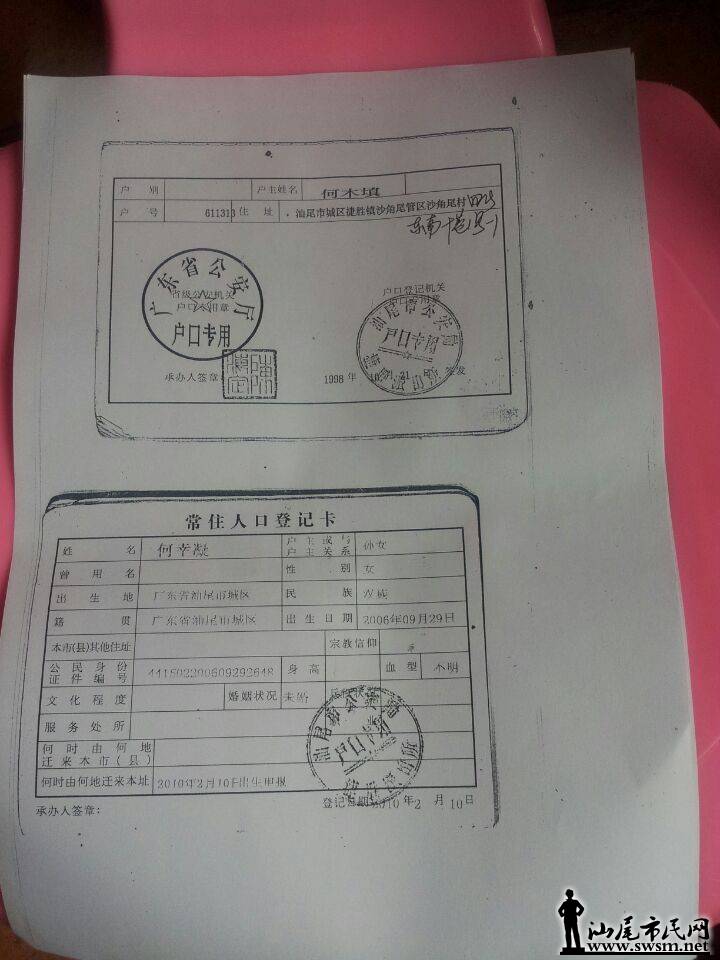 户 别 户主姓名 何木填
户 号 611313 住 址 汕尾市城区捷胜镇沙角尾管区沙角尾村
东南十巷
广东省公安厅
省级公安机关
户口专用章
户口专用
户口登记机关
户口专用章
汕尾市公安局
户口专用
承办人签章:
1998 年 签发
常住人口登记卡
姓 名 何幸凝 户主或与户主关系 孙女
曾用名 性 别 女
出生地 广东省汕尾市城区 民 族 汉族
籍 贯 广东省汕尾市城区 出生日期 2006年09月29日
本市(县)其他住址 宗教信仰
公民身份证件编号 441502200609292648 身 高 血 型 不明
文化程度 婚姻状况 未婚 兵役状况
服务处所
何时由何地迁来本市(县)
何时由何地迁来本址 2010年2月10日出生申报
汕尾市公安局
户口专用
承办人签章: 登记日期:2010年2月10日
汕尾市民网
www.swsm.net